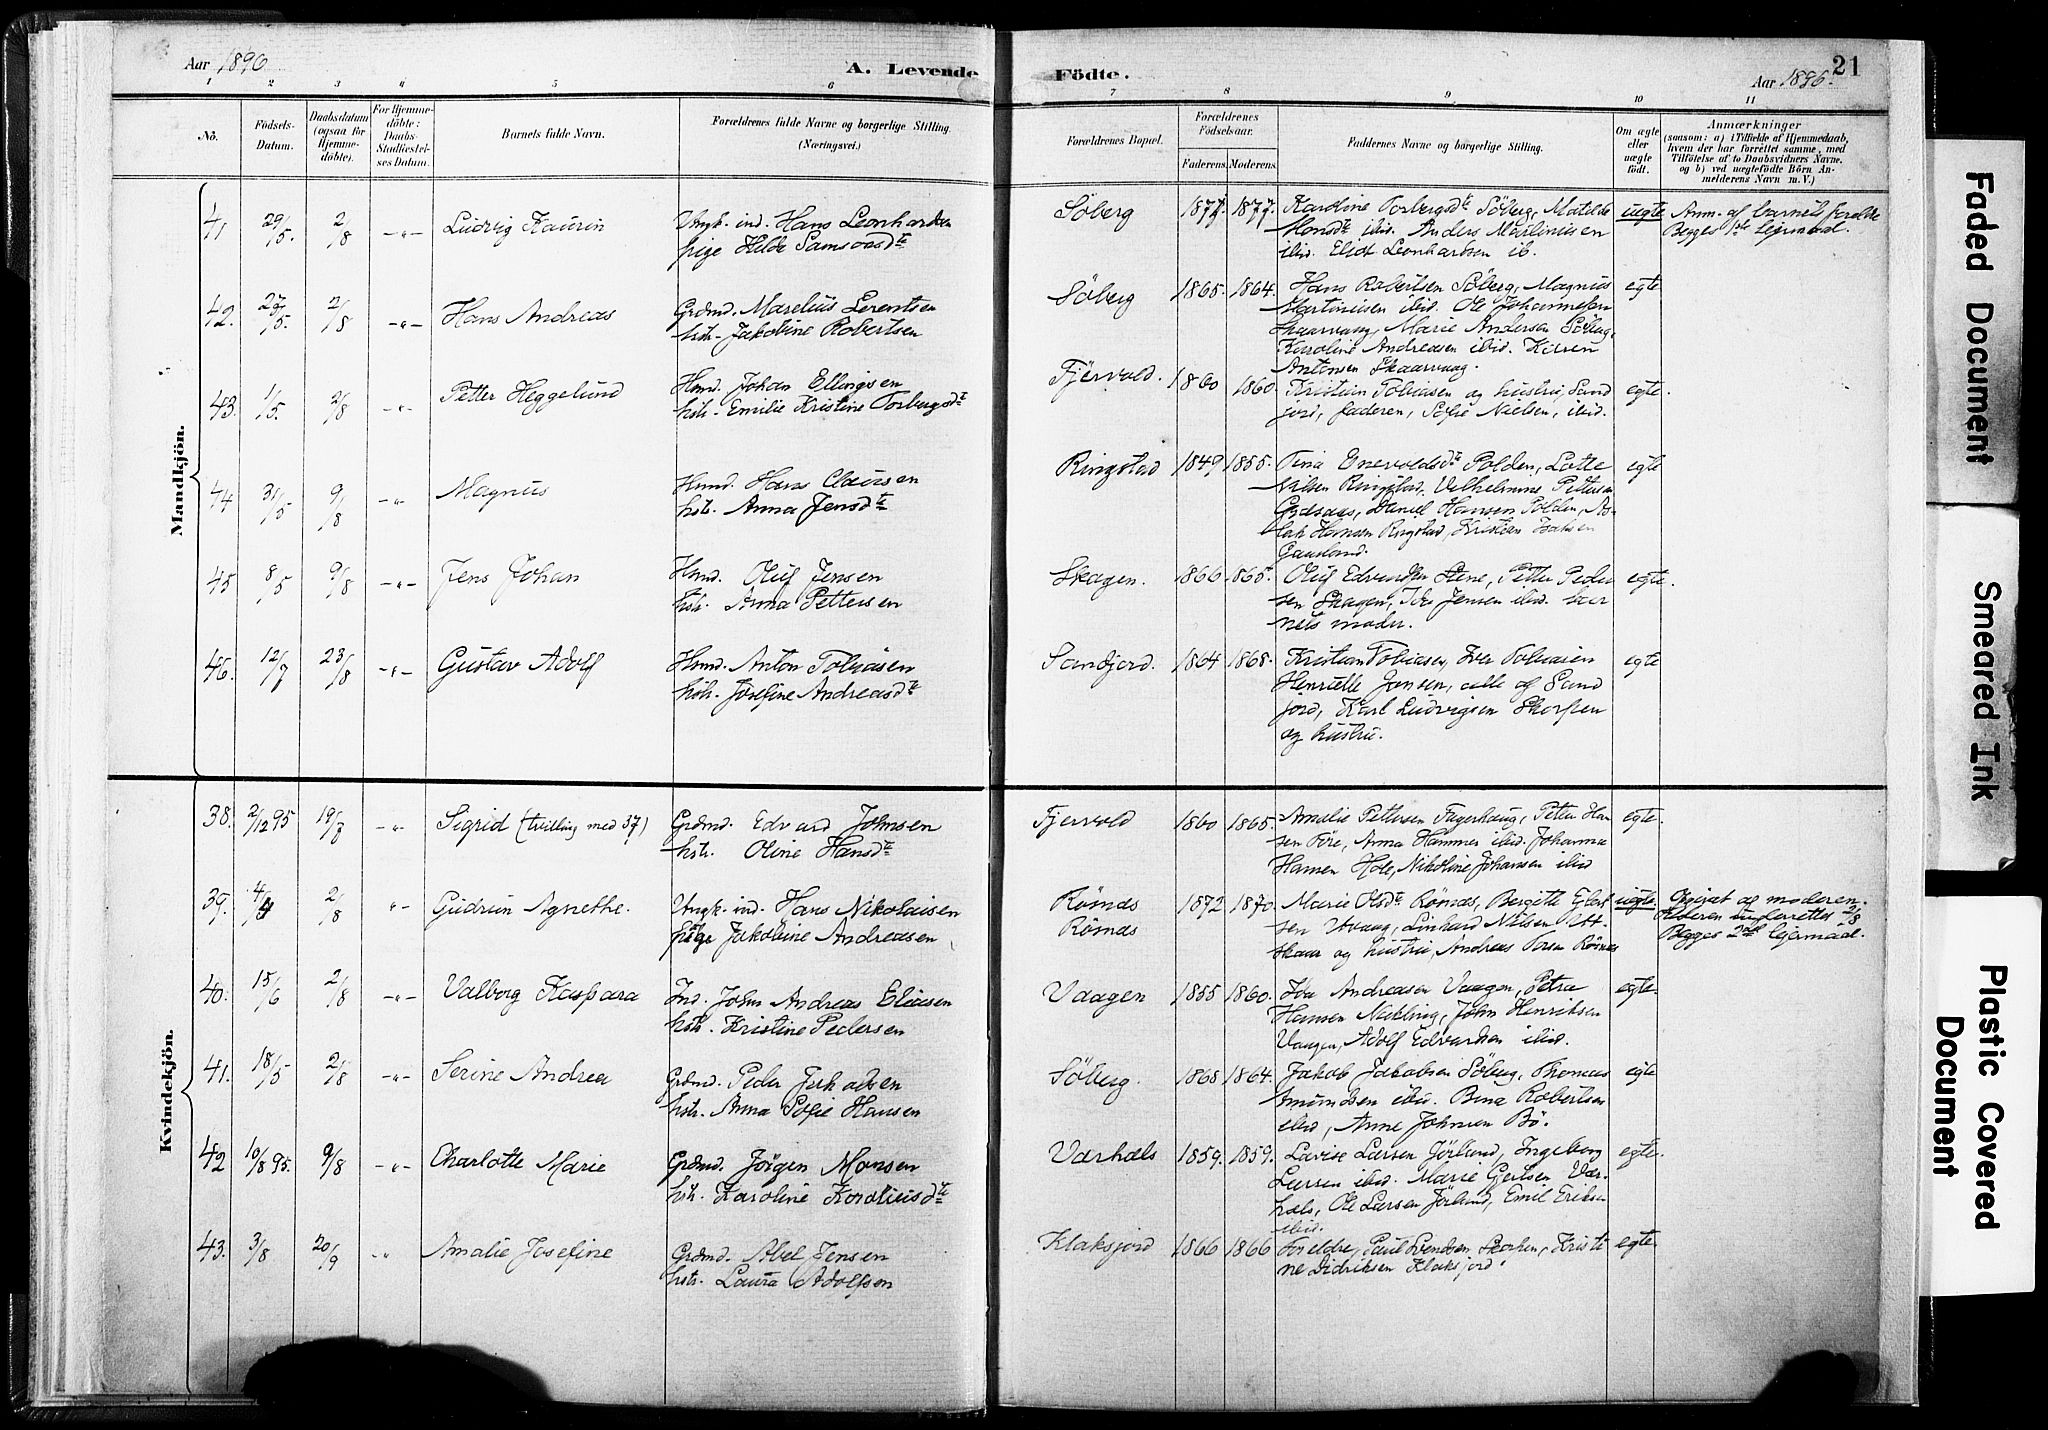 Aar 1896
A. Levende
Födte.
21
Aar 1896.
1 2 3 4 5 6 7 8 9 10 11
No.
Födsels-
Datum.
Daabsdatum
(ogsaa for
Hjemme-
döbte).
For Hjemme-
döbte:
Daabs-
Stadfæstel-
ses Datum.
Barnets fulde Navn.
Forældrenes fulde Navne og borgerlige Stilling.
(Næringsvei.)
Forældrenes Bopæl.
Forældrenes
Födselsaar.
Faderens. Moderens.
Faddernes Navne og borgerlige Stilling.
Om ægte
eller
uægte
født.
Anmærkninger
(saasom: a) i Tilfælde af Hjemmedaab,
hvem der har forrettet samme, med
Tilföielse af to Daabsvidners Navne.
og b) ved uægtefödte Börn An-
melderens Navn m. V.)
Mandkjön.
41 29/5. 2/8 -"- Ludvig Kaurin
Ungk. ind. Hans Leonhardsen
pige Hilda Samsonsdte
Söberg 1877. 1877.
Karoline Torbergsdte Söberg, Matilde
Monsdte ibid. Anders Martiniusen
ibid. Elidt Leonhardsen ib.
uegte
Anm. af barnets forældre
Begges 1ste lejermaal.
42. 27/5. 2/8 -"- Hans Andreas
Grdmd. Marelius Lorentsen
hstr. Jakobine Robertsen
Söberg 1865. 1864.
Hans Robertsen Söberg, Magnus
Martinusen ibid. Ole Johannesen
Skaarvaag, Marie Andersen Söberg,
Karoline Andreasen ibid. Karen
Antonsen Skaarvaag.
egte
43. 1/5. 2/8 -"- Petter Heggelund
Hmd. Johan Ellingsen
hstr. Emilie Kristine Torbergsdte
Fjærvold. 1860 1860.
Kristian Tobiasen og hustru, Sand
jord, faderen, Sofie Nielsen, ibid.
egte.
44 31/5 9/8 -"- Magnus
Hmd. Hans Clausen
hstr. Anna Jensdte
Ringstad 1849 1855.
Tina Enevoldsdte Polden, Lotte
Nilsen Ringstad, Vilhelmine Pettersen
Grdsaas, Daniel Hansen Polden, As-
lak Hansen Ringstad, Kristian Isaksen
Gaasland.
egte
45 8/5 9/8 -"- Jens Johan
Hmd. Oluf Jensen
hstr. Anna Pettersen
Skagen. 1866 1865.
Oluf Edvardsen Stene, Petter Peder
sen Skagen, Ida Jensen ibid. bar
nets moder.
egte.
46. 12/7 23/8 -"- Gustav Adolf
Hmd. Anton Tobiasen
hstr. Josefine Andreasdte
Sandjord. 1864 1868.
Kristian Tobiasen, Iver Tobiasen
Henriette Jensen, alle af Sand
jord, Karl Ludvigsen Skorpen
og hustru.
egte
Kvindekjön.
38. 2/12 95 19/7 -"- Sigrid (tvilling med 37)
Grdmd. Edvard Johnsen
hstr. Oline Hansdte
Fjærvold 1860 1865.
Amalie Pettersen Fagerhaug, Petter Han
sen Före, Anna Hammer ibid. Johanna
Hansen Hole, Nikoline Johansen ibid
egte.
39. 4/4 2/8 " Gudrun Agnethe.
Ungk. ind. Hans Nikolaisen
pige Jakobine Andreasen
Römnes
Römnes
1872 1870.
Marie Olsdte Römnes, Bergitte
sen Utvaag, Linhard Nilsen Utt-
skaar og hustru, Andreas Torsen Römnes
uegte.
Opgivet af moderen.
Faderen underrettet 2/8
Begges 2det lejermaal.
40. 15/6 2/8 -"- Valborg Kaspara
Ind. John Andreas Eliasen
hstr. Kristine Pedersen
Vaagen 1855 1860.
Ida Andreasen Vaagen, Petra
Hansen Nakling, John Henriksen
Vaagen, Adolf Edvardsen ibid.
egte.
41. 18/5 2/8 -"- Serine Andrea
Grdmd. Peder Jakobsen
hstr. Anna Sofie Hansen
Söberg. 1868 1864.
Jakob Jakobsen Söberg, Thomas
Amundsen ibid. Bina Robertsen
ibid, Anne Johnsen Bö.
egte
42 10/8 95. 9/8 -"- Charlotte Marie
Grdmd. Jörgen Monsen
hstr. Karoline Korneliusdte
Værhals 1859. 1859.
Lavise Larsen Jörlund, Ingeborg
Larsen ibid. Marie Gertsen Vær-
hals, Ole Larsen Jörlund, Emil Eriksen
ibid.
egte.
43. 3/8 20/9 " Amalie Josefine
Grdmd. Abel Jensen
hstr. Laura Adolfsen
Klaksjord 1866 1866
Foreldre, Paul Svendsen Skorpen, Kristi
ne Didriksen Klaksjord.
egte.
Faded Document
Smeared Ink
Plastic Covered
Document